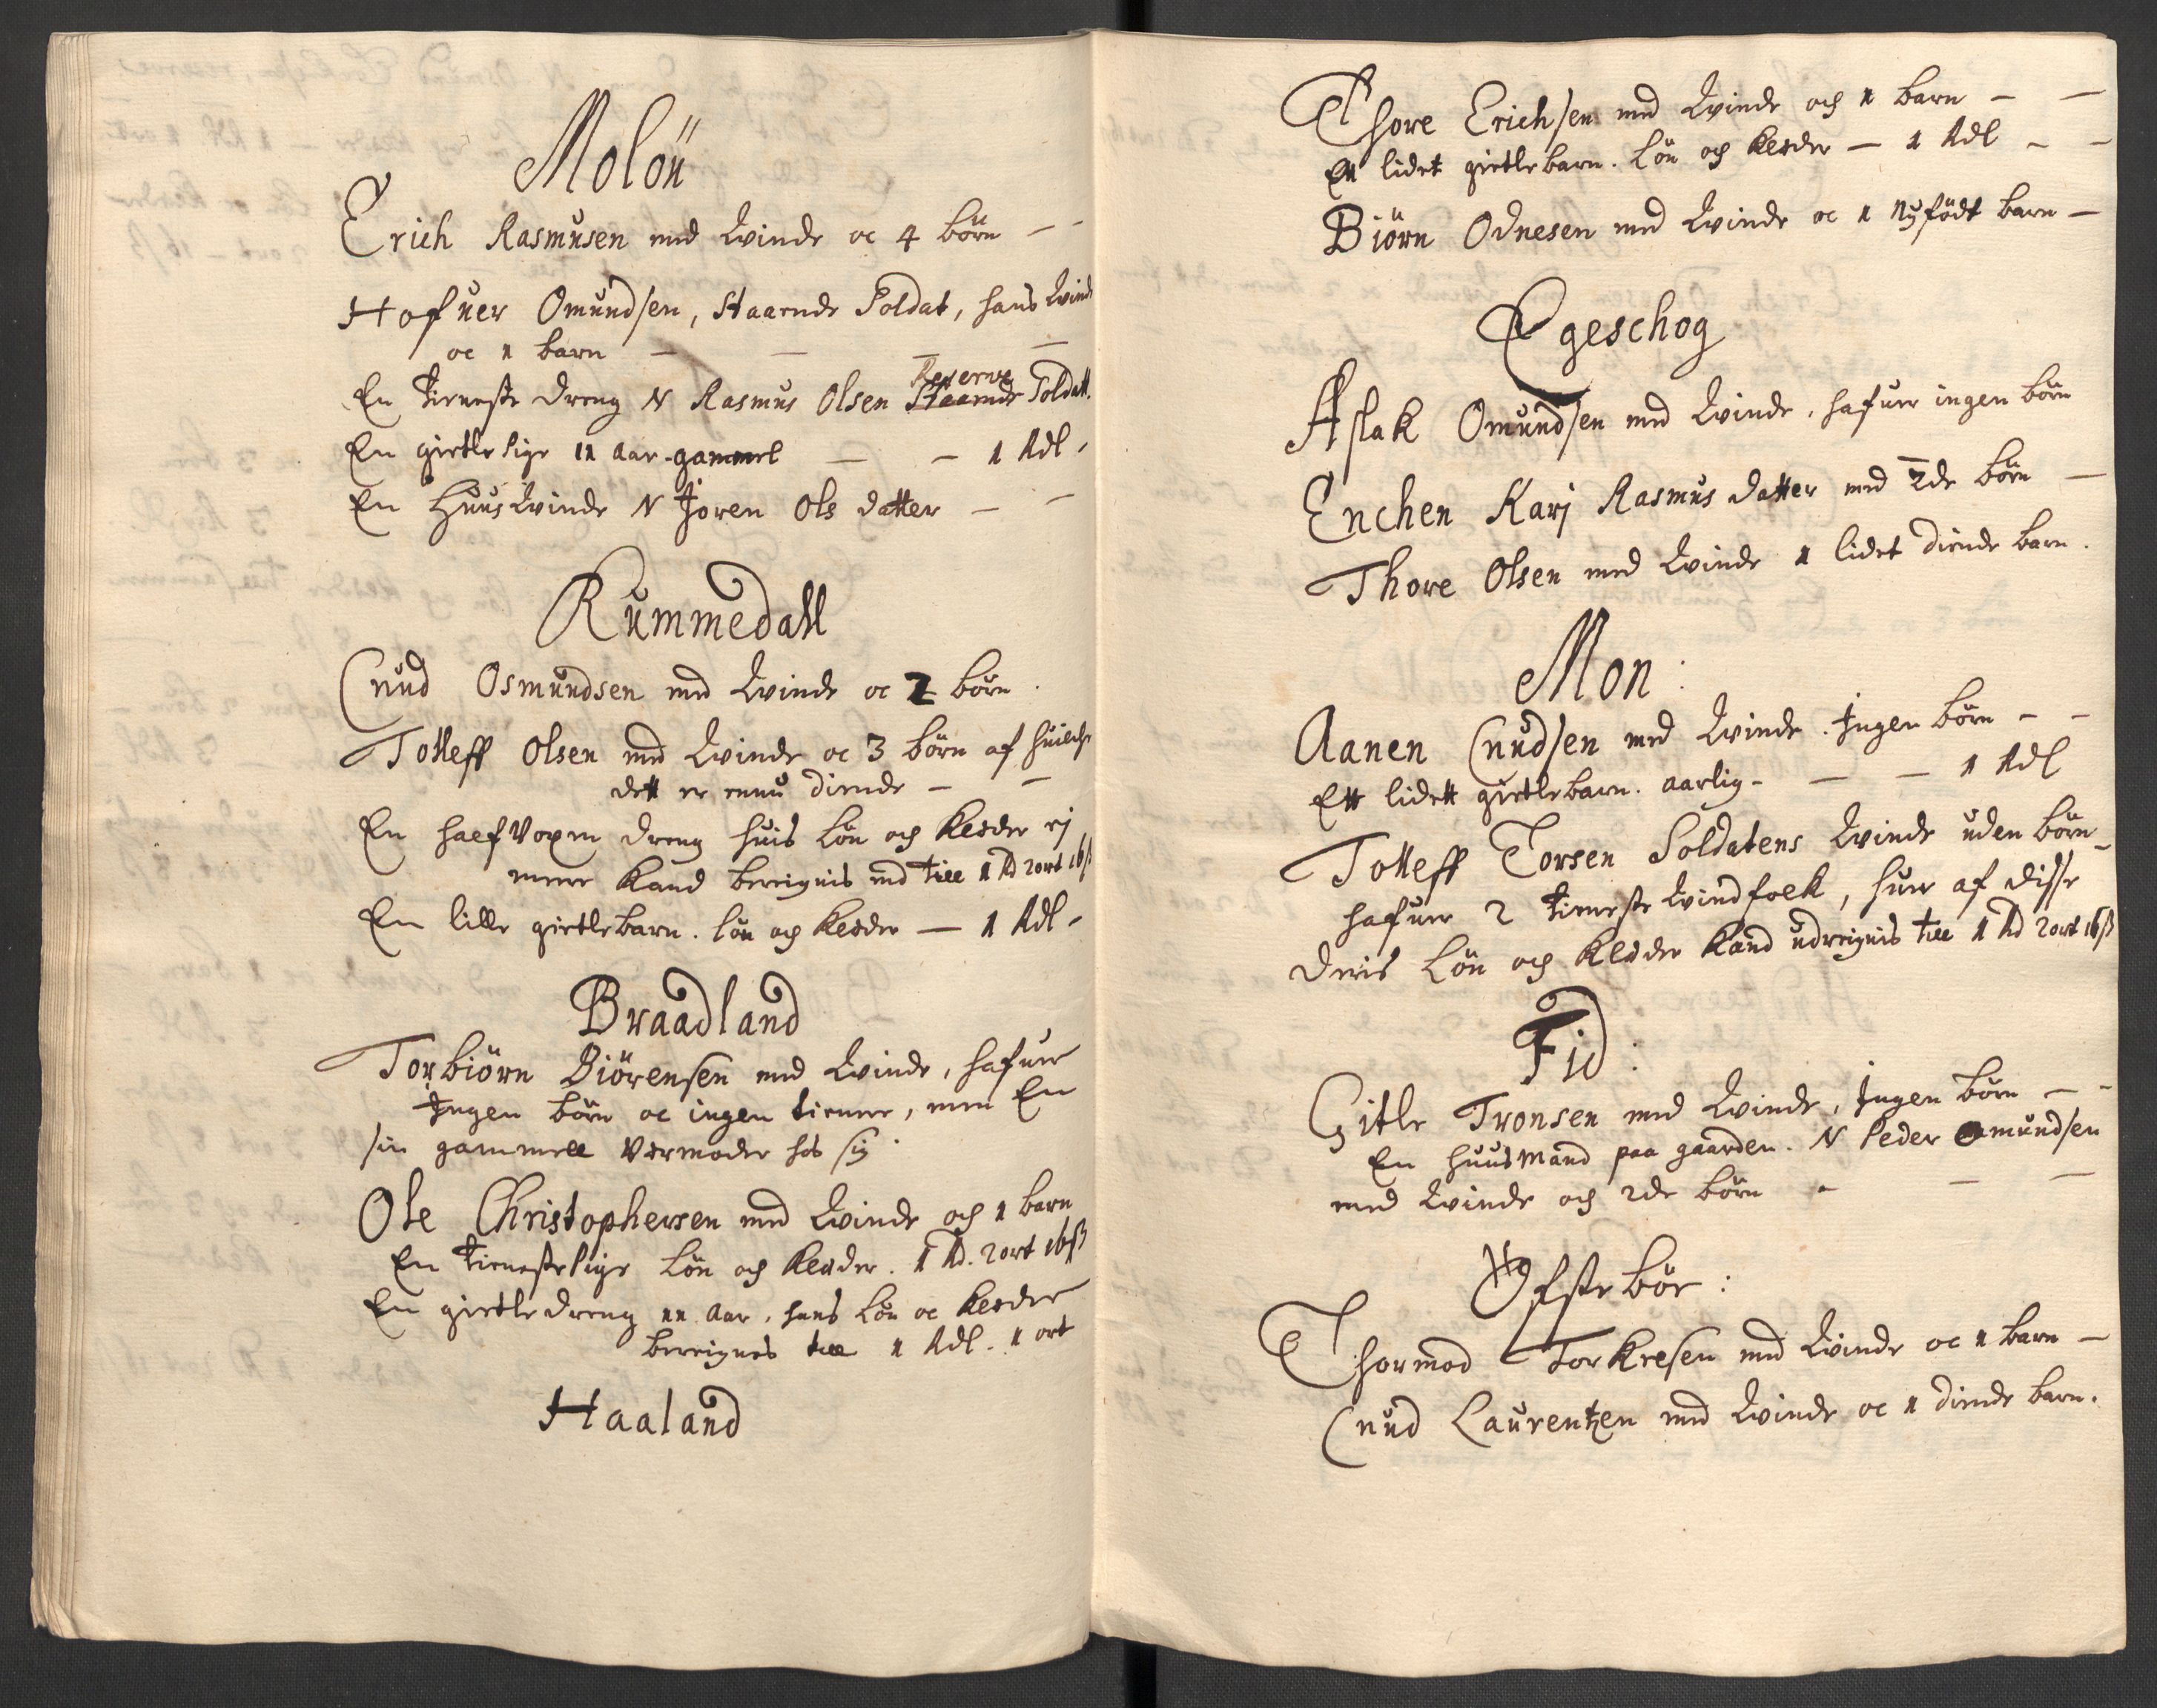 Molöu
Erich Rasmusen med Qvinde oc 4 börn - -
Hofuer Omundsen, Staarnde Soldat, hans Qvinde
oc 1 barn - - - -
En tieneste dreng N Rasmus Olsen Reserve Staarnde Soldatt.
En gietle pige 11 aar gammel - - 1 Rdl -
En Huus Qvinde N Joren Ols datter - -
Rummedall
Cnud Osmundsen med Qvinde oc 2 börn .
Tolleff Olsen med Qvinde oc 3 börn af huilche
dett er ennu diende - -
En half voxen dreng huis lön och kleder ej
mere kand bereignis end till 1 Rd 2 ort 16 ß
En lille gietlebarn. lön och kleder - 1 Rdl -
Braadland
Torbiörn Biörensen med Qvinde, hafuer
Ingen börn oc ingen tienere, men En
sin gammell Vermoder hos sig
Ole Christophersen med Qvinde och 1 barn
En tieneste pige lön och kleder. 1 Rd. 2 ort 16 ß
En gietledreng 11 aar, hans lön oc kleder
bereignes till 1 Rdl. 1 ort
Haaland
Thore Erichsen med Qvinde och 1 barn - -
Et lidet gietlebarn. lön och kleder - 1 Rdl - -
Biörn Odnesen med Qvinde oc 1 nyfödt barn -
Egeschog
Aslak Omundsen med Qvinde, hafuer ingen börn
Enchen Karj Rasmus datter med 2de börn -
Thore Olsen med Qvinde 1 lidet diende barn.
Mon :
Aanen Cnudsen med Qvinde . Ingen börn - -
Ett lidett gietlebarn. aarlig - - - 1 Rdl
Tolleff Torsen Soldatens Qvinde uden börn -
hafuer 2 tieneste Qvindfolk, huer af disse
deris lön och kleder kand udreignis till 1 Rd 2 ort 16 ß
Fid :
Gitle Tronsen med Qvinde, Ingen börn - -
En huusmand paa gaarden. N Peder Omundsen
med Qvinde och 2de börn - - -
Öfstebör :
Thormod Torkresen med Qvinde oc 1 barn -
Cnud Laurentzen med Qvinde oc 1 diende barn.